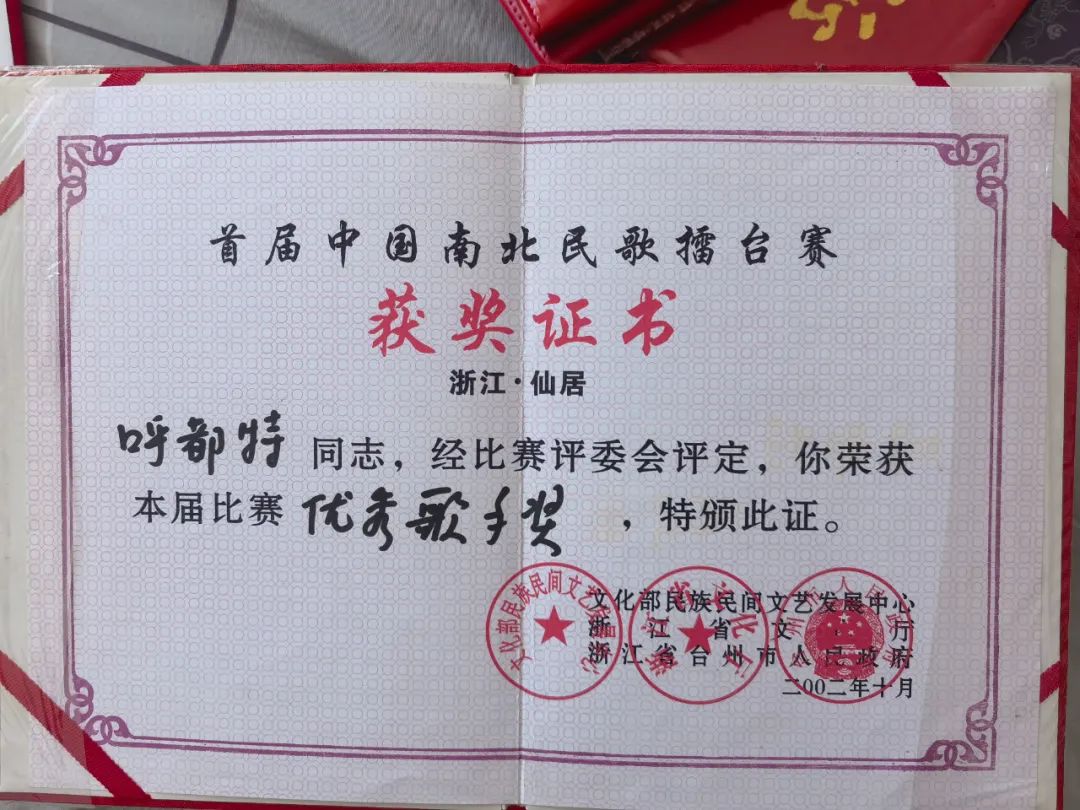 首届中国南北民歌擂台赛
获奖证书
浙江·仙居
呼都特 同志，经比赛评委会评定，你荣获
本届比赛 优秀歌手奖 ，特颁此证。
文化部民族民间文艺发展中心
浙江省文化厅
浙江省台州市人民政府
二00二年十月
文化部民族民间文艺发展中心
浙江省文化厅
台州市人民政府